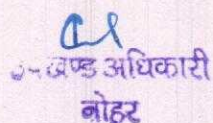 उ-खण्ड अधिकारी
नोहर